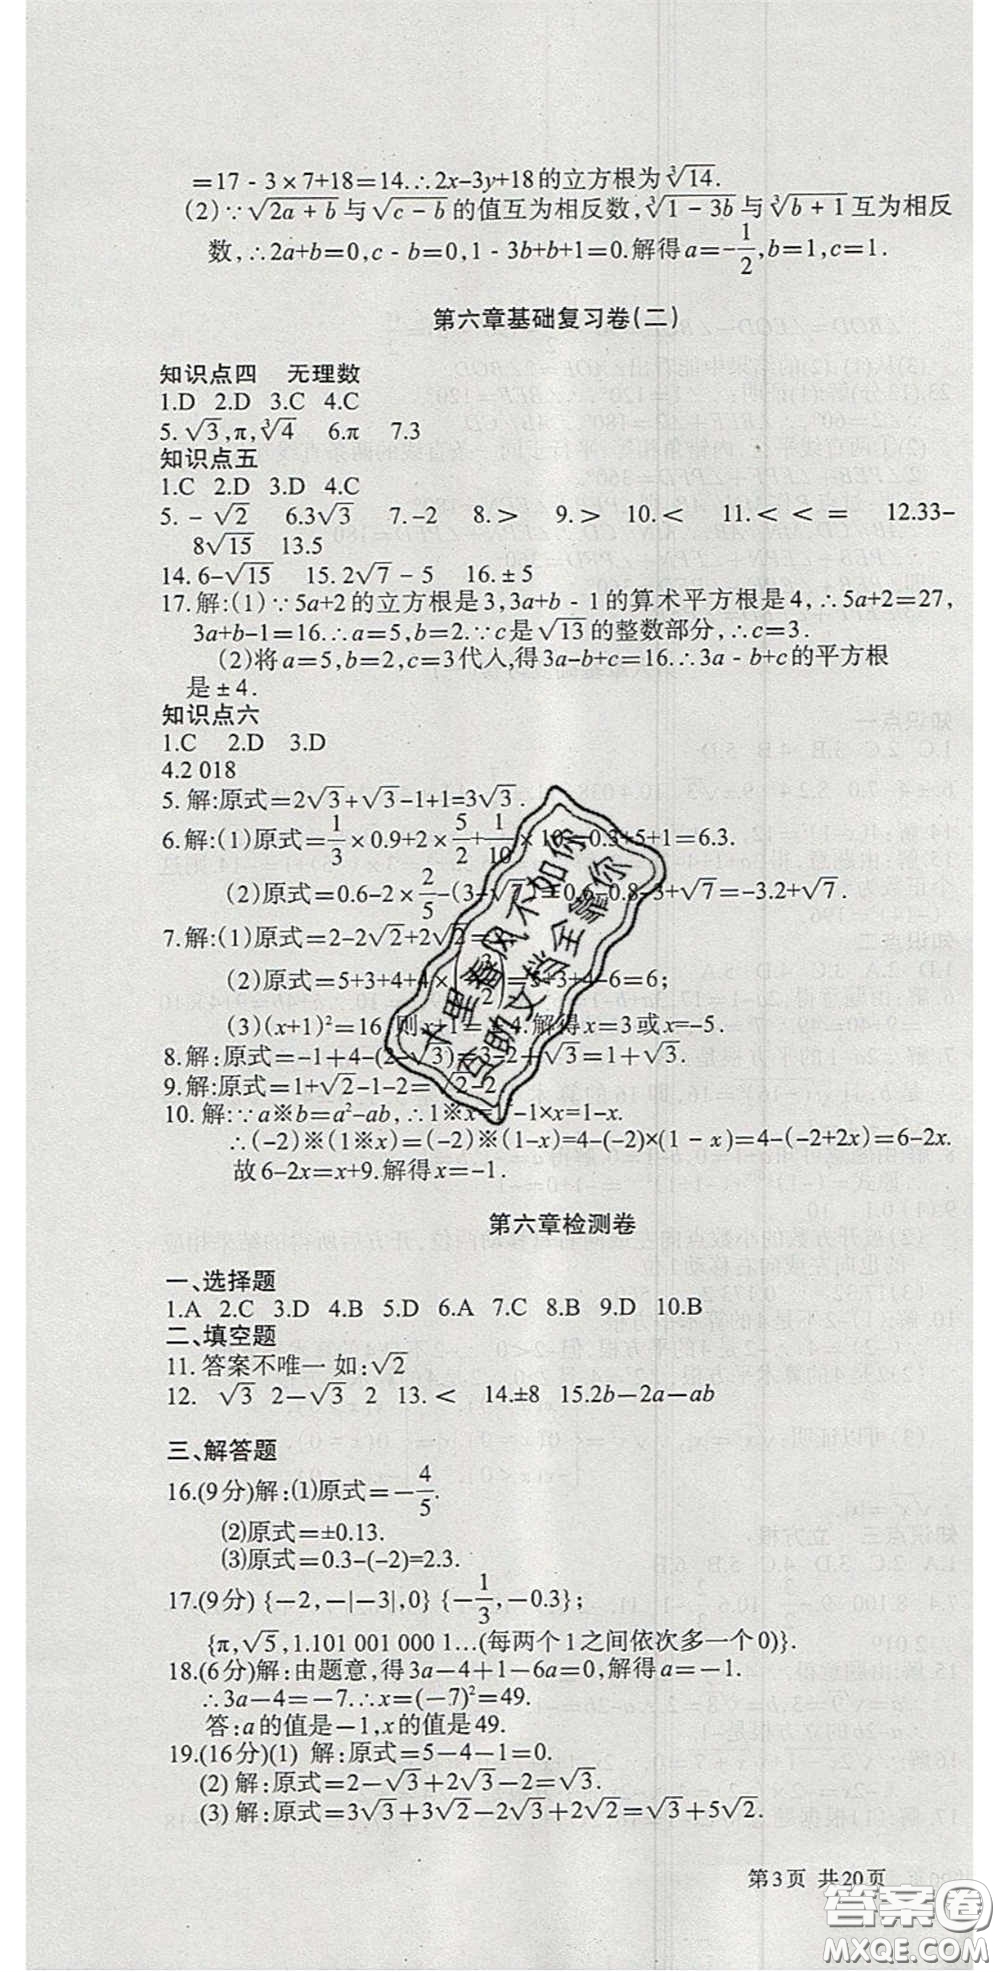 =17 - 3×7+18=14.∴2x-3y+18的立方根为∛14.
(2)∵√(2a+b)与√(c-b)的值互为相反数,∛(1-3b)与∛(b+1)互为相反
数,∴2a+b=0,c-b=0,1-3b+b+1=0.解得a=-1/2,b=1,c=1.
第六章基础复习卷(二)
知识点四 无理数
1.D 2.D 3.C 4.C
5.√3,π,∛4 6.π 7.3
知识点五
1.C 2.D 3.D 4.C
5.-√2 6.3√3 7.-2 8.> 9.> 10.< 11.< < = 12.33-
8√15 13.5
14.6-√15 15.2√7-5 16.±5
17.解:(1)∵5a+2的立方根是3,3a+b-1的算术平方根是4,∴5a+2=27,
3a+b-1=16.∴a=5,b=2.∵c是√13的整数部分,∴c=3.
(2)将a=5,b=2,c=3代入,得3a-b+c=16.∴3a-b+c的平方根
是±4.
知识点六
1.C 2.D 3.D
4.2 018
5.解:原式=2√3+√3-1+1=3√3.
6.解:(1)原式=1/3×0.9+2×5/2+1/10×10=0.3+5+1=6.3.
(2)原式=0.6-2×2/5-(3-√7)=0.6-0.8-3+√7=-3.2+√7.
7.解:(1)原式=2-2√2+2√2=
(2)原式=5+3+4+4×(-3/2)=5+3+4-6=6;
(3)(x+1)²=16,则x+1=±4.解得x=3或x=-5.
8.解:原式=-1+4-(2-√3)=3-2+√3=1+√3.
9.解:原式=1+√2-1-2=√2-2.
10.解:∵a※b=a²-ab,∴1※x=1²-1×x=1-x.
∴(-2)※(1※x)=(-2)※(1-x)=4-(-2)×(1-x)=4-(-2+2x)=6-2x.
故6-2x=x+9.解得x=-1.
第六章检测卷
一、选择题
1.A 2.C 3.D 4.B 5.D 6.A 7.C 8.B 9.D 10.B
二、填空题
11.答案不唯一 如:√2
12. √3 2-√3 2 13.< 14.±8 15.2b-2a-ab
三、解答题
16.(9分)解:⑴原式=-4/5.
⑵原式=±0.13.
⑶原式=0.3-(-2)=2.3.
17.(9分) {-2,-|-3|,0} {-1/3,-0.3};
{π,√5,1.101 001 000 1…(每两个1之间依次多一个0)}.
18.(6分)解:由题意,得3a-4+1-6a=0,解得a=-1.
∴3a-4=-7.∴x=(-7)²=49.
答:a的值是-1,x的值是49.
19.(16分)(1) 解:原式=5-4-1=0.
(2) 解:原式=2-√3+2√3-2=√3.
(3) 解:原式=3√3+3√2-2√3+2√2=√3+5√2.
第3页 共20页
十里春风不如你
互助文档全靠你
答案圈
MXQE.COM